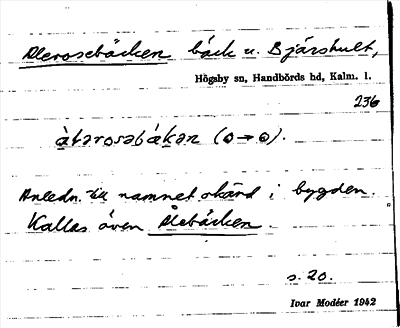 Alerosebäcken bäck v. Bjärshult,
Högsby sn, Handbörds hd, Kalm. l.
236
(o→o).
Anledn. till namnet okänd i bygden.
Kallas även Ålebäcken.
s. 20.
Ivar Modéer 1942